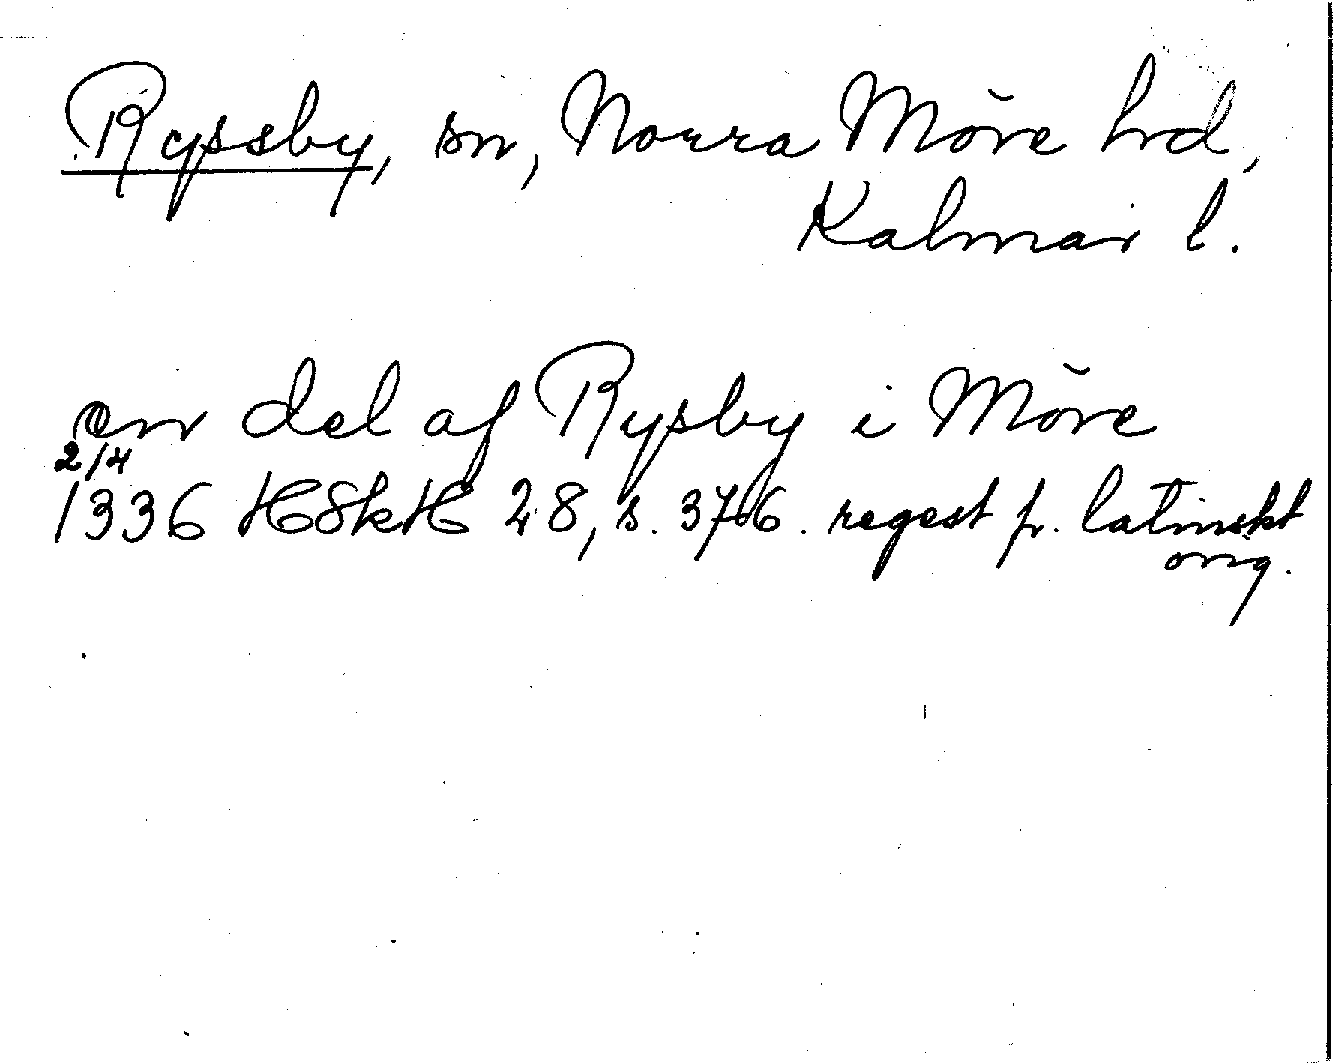 Ryssby, sn, Norra Möre hd,
Kalmar l.
en del af Rysby i Möre
2/4
1336 HSkH 28, s. 376. regest fr. latinskt
orig.